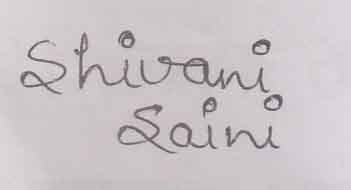 Shivani
Saini